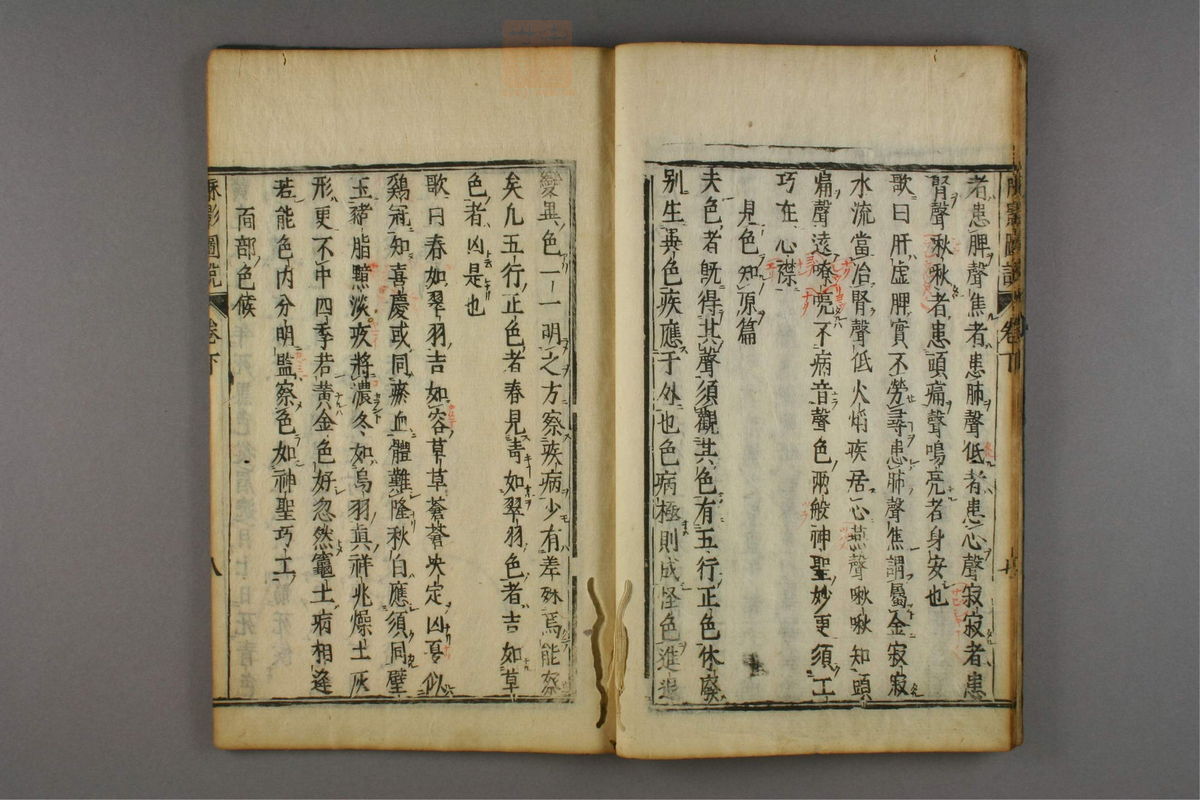 者患脾聲焦者患肺聲低者患心聲寂寂者患
腎聲啾啾者患頭痛聲鳴亮者身安也
歌曰肝虛脾實不勞尋患肺聲焦謂屬金寂寂
水流當治腎聲低火焰疾居心燕聲啾啾知頭
痛聲遠嘹亮不病音聲色兩般神聖妙更須工
巧在心襟
見色知原篇
夫色者既得其聲須觀其色有五行正色休廢
别生異色疾應于外也色病極則成怪色進退
變異色一一明之方察疾病少有差殊焉能察
矣凡五行正色者春見青如翠羽色者吉如草
色者凶是也
歌曰春如翠羽吉如容草草蒼蒼决定凶夏似
鷄冠知喜慶或同瘀血體難隆秋白應須同璧
玉豬脂黲淡疾將濃冬如烏羽真祥兆燥土灰
形更不中四季若黃金色好忽然竈土病相逢
若能色内分明監察色如神聖巧工
面部色候
脉影圖說 卷下 八